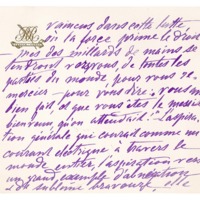 vaincus dans cette lutte
où la force prime le droit
mes des milliards de mains se
tendront vers vous de toutes les
parties du monde pour vous re-
mercier - pour vous dire : vous avez
bien fait et que vous êtes le messie
bienvenu qu'on attendait ! L'aspira-
tion générale qui courait comme un
courant électrique à travers le
monde entier, l'aspiration vers
un grand exemple d'abnégation
et de sublime bravoure, elle